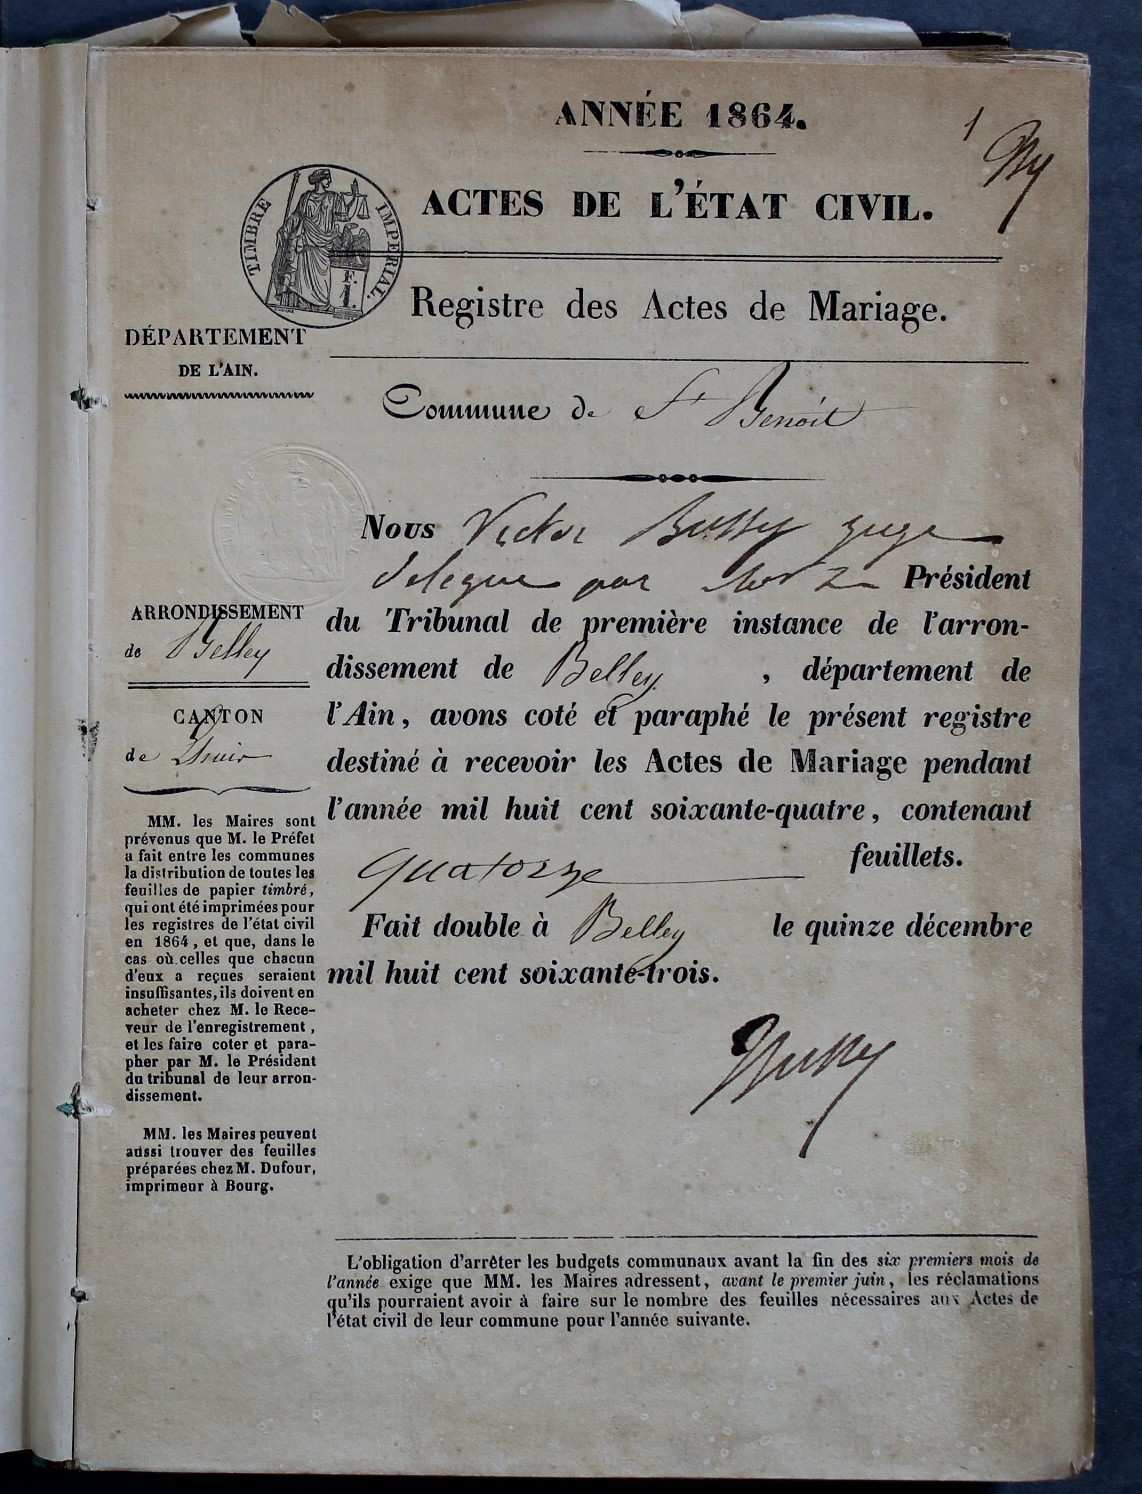 ANNÉE 1864.
1
TIMBRE IMPERIAL.
F.
1.
ACTES DE L'ÉTAT CIVIL.
Registre des Actes de Mariage.
DÉPARTEMENT
DE L'AIN.
Commune de St Benoit
Nous Victor Bussy Juge
delegue par Président
du Tribunal de première instance de l'arron-
dissement de Belley, département de
l'Ain, avons coté et paraphé le présent registre
destiné à recevoir les Actes de Mariage pendant
l'année mil huit cent soixante-quatre, contenant
quatorze feuillets.
Fait double à Belley le quinze décembre
mil huit cent soixante-trois.
Bussy
ARRONDISSEMENT
de Belley
CANTON
de Lhuis
MM. les Maires sont
prévenus que M. le Préfet
a fait entre les communes
la distribution de toutes les
feuilles de papier timbré,
qui ont été imprimées pour
les registres de l'état civil
en 1864, et que, dans le
cas où celles que chacun
d'eux a reçues seraient
insuffisantes, ils doivent en
acheter chez M. le Rece-
veur de l'enregistrement,
et les faire coter et para-
pher par M. le Président
du tribunal de leur arron-
dissement.
MM. les Maires peuvent
aussi trouver des feuilles
préparées chez M. Dufour,
imprimeur à Bourg.
L'obligation d'arrêter les budgets communaux avant la fin des six premiers mois de
l'année exige que MM. les Maires adressent, avant le premier juin, les réclamations
qu'ils pourraient avoir à faire sur le nombre des feuilles nécessaires aux Actes de
l'état civil de leur commune pour l'année suivante.